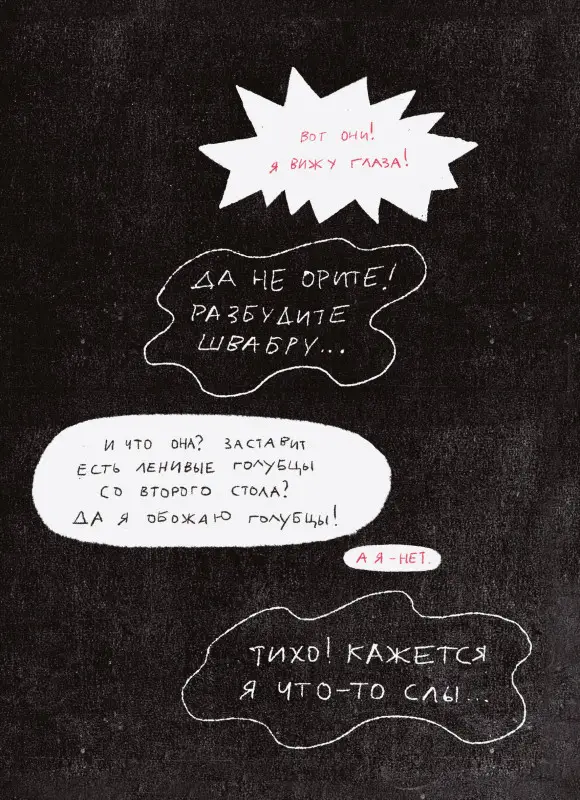 ВОТ ОНИ!
Я ВИЖУ ГЛАЗА!
ДА НЕ ОРИТЕ!
РАЗБУДИТЕ
ШВАБРУ...
И ЧТО ОНА? ЗАСТАВИТ
ЕСТЬ ЛЕНИВЫЕ ГОЛУБЦЫ
СО ВТОРОГО СТОЛА?
ДА Я ОБОЖАЮ ГОЛУБЦЫ!
А Я - НЕТ.
ТИХО! КАЖЕТСЯ
Я ЧТО-ТО СЛЫ...